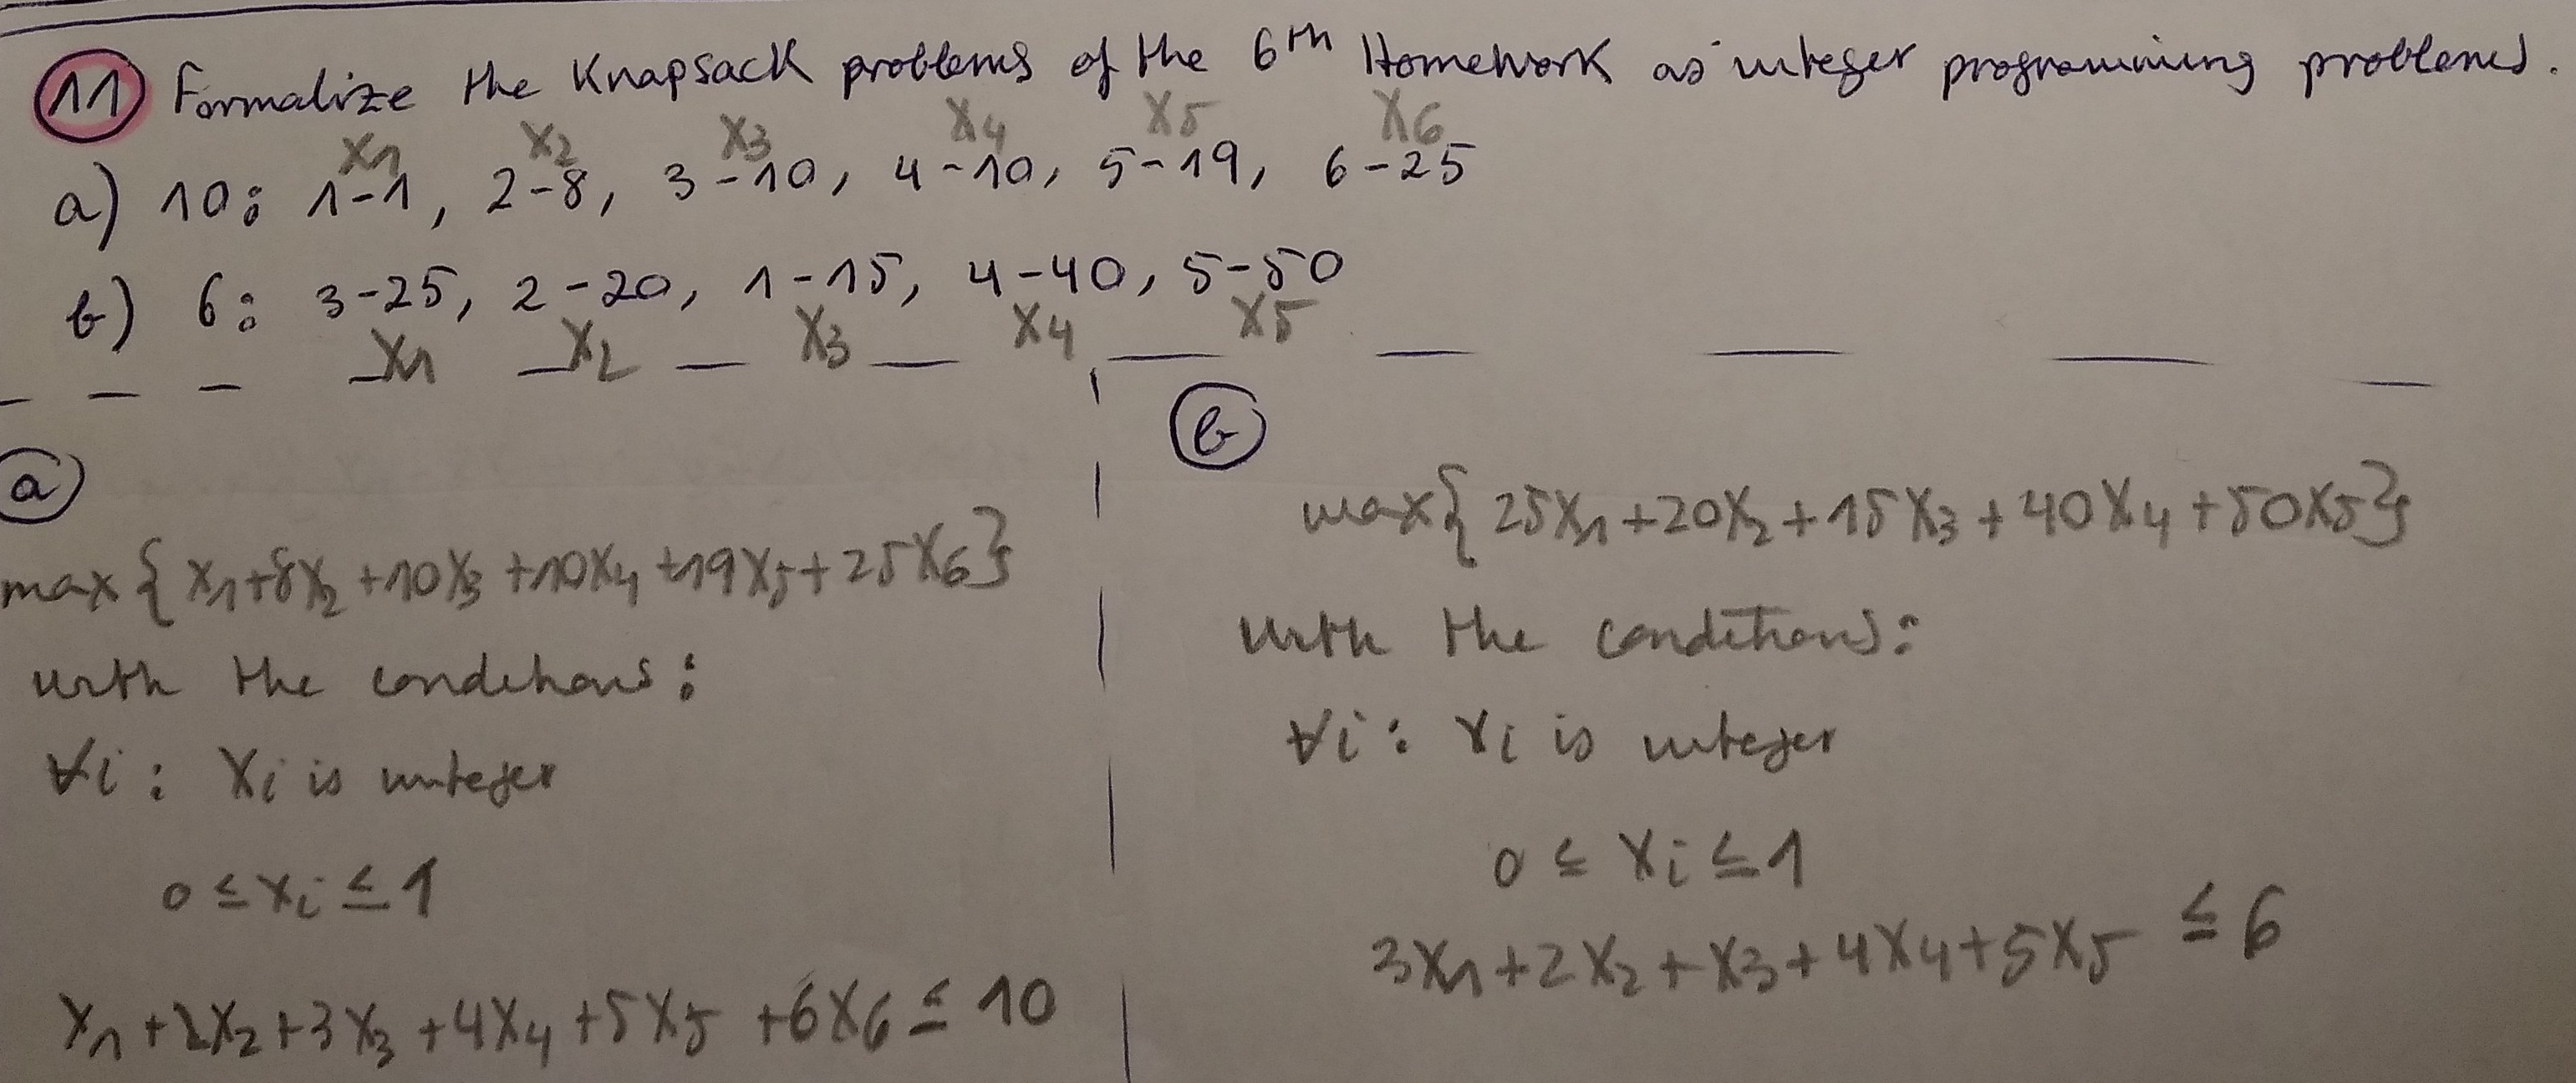 11 Formalize the Knapsack problems of the 6th Homework as integer programming problems.
x1 x2 x3 x4 x5 x6
a) 10: 1-1, 2-8, 3-10, 4-10, 5-19, 6-25
b) 6: 3-25, 2-20, 1-15, 4-40, 5-50
x1 x2 x3 x4 x5
a)
max {x1+8x2+10x3+10x4+19x5+25x6}
with the conditions:
∀i: xi is integer
0 ≤ xi ≤ 1
x1+2x2+3x3+4x4+5x5+6x6 ≤ 10
b
max{25x1+20x2+15x3+40x4+50x5}
with the conditions:
∀i: xi is integer
0 ≤ xi ≤ 1
3x1+2x2+x3+4x4+5x5 ≤ 6